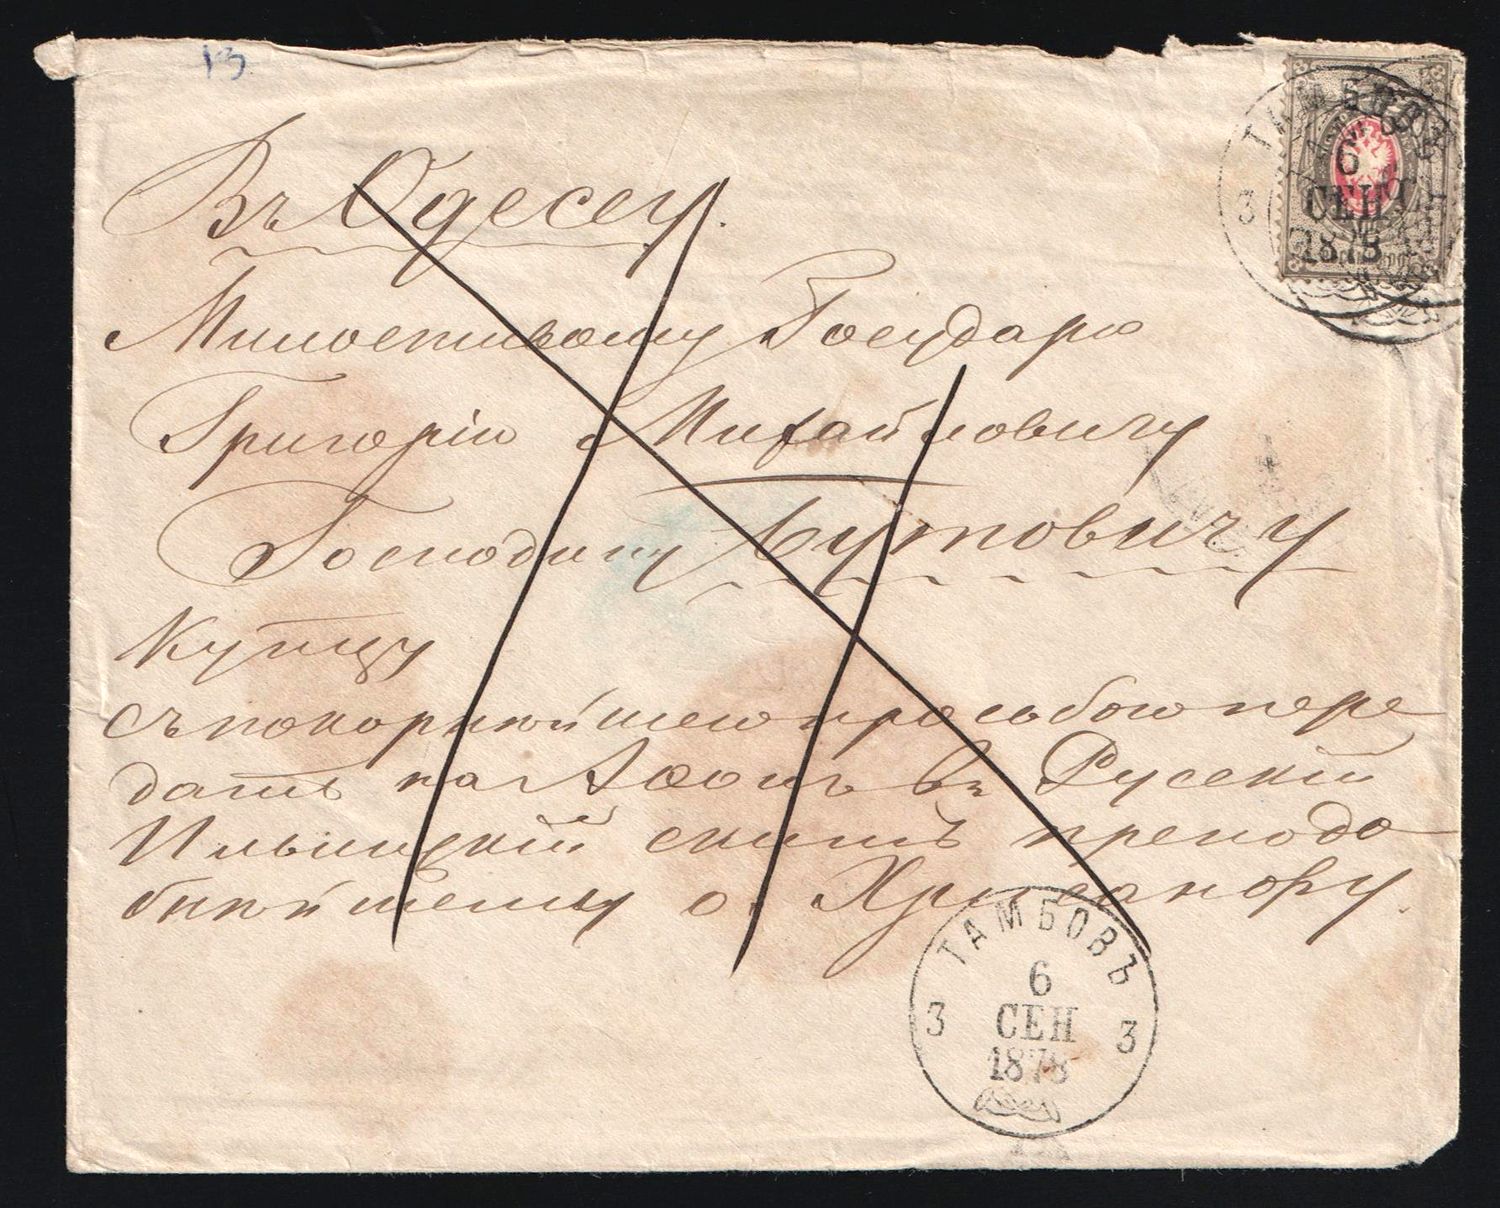 13
Въ Одессу.
Милостивому Государю
Григорію Михайловичу
Господину Бутовичу
Купцу
съ покорнѣйшею просьбою пере
дать на Аѳонъ въ Русскій
Ильинскій скитъ преподо
бнѣйшему о. Хрисанфу.
ТАМБОВЪ
6
СЕН
1878
3
ТАМБОВЪ
3 6 3
СЕН
1878